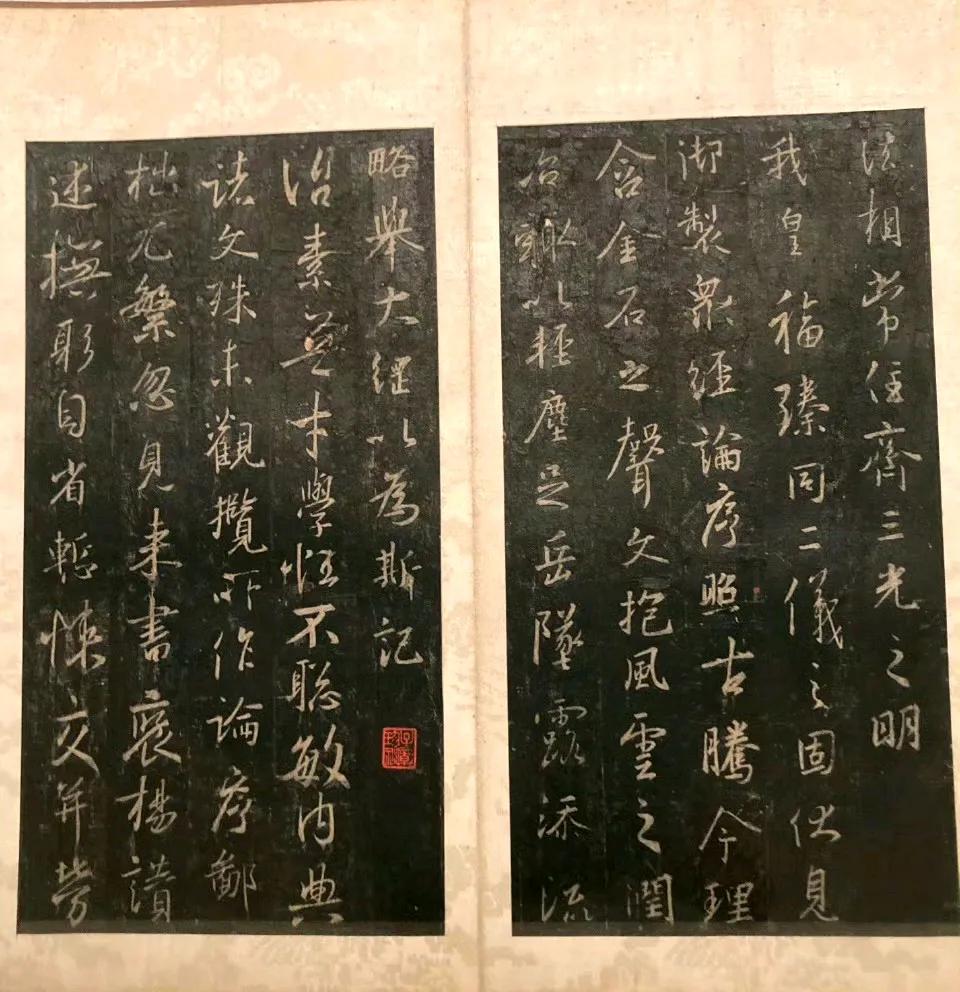 法相常住齊三光之明
我皇福臻同二儀之固伏見
御製衆經論序照古騰今理
含金石之聲文抱風雲之潤
治輒以輕塵足岳墜露添流
略舉大綱以為斯記
治素無才學性不聰敏內典
諸文殊未觀攬所作論序鄙
拙尤繁忽見來書褒揚讚
述撫躬自省慙悚交并勞